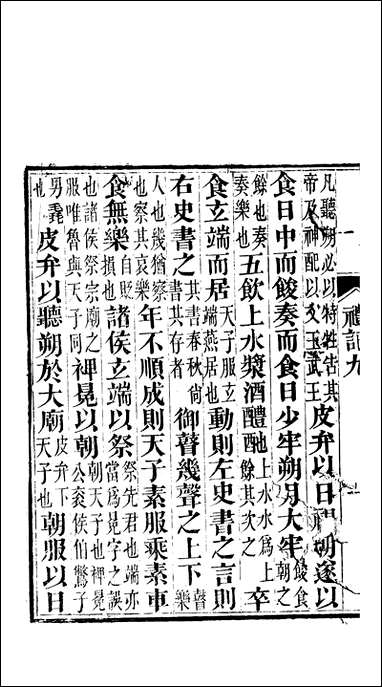 禮記九
凡聽朔必以特牲告其帝及神配以文王武王皮弁以日視朝遂以
食日中而餕奏而食日少牢朔月大牢餕食朝之
餘也奏奏樂也五飲上水漿酒醴酏上水水為上餘其次之卒
食玄端而居天子服玄端燕居也動則左史書之言則
右史書之其書春秋尚書其存者御瞽幾聲之上下瞽樂
人也幾猶察也察其哀樂年不順成則天子素服乘素車
食無樂自貶損也諸侯玄端以祭祭先君也端亦當為冕字之誤
也諸侯祭宗廟之服唯魯與天子同裨冕以朝朝天子也裨冕公袞侯伯鷩子
男毳也皮弁以聽朔於大廟皮弁下天子也朝服以日